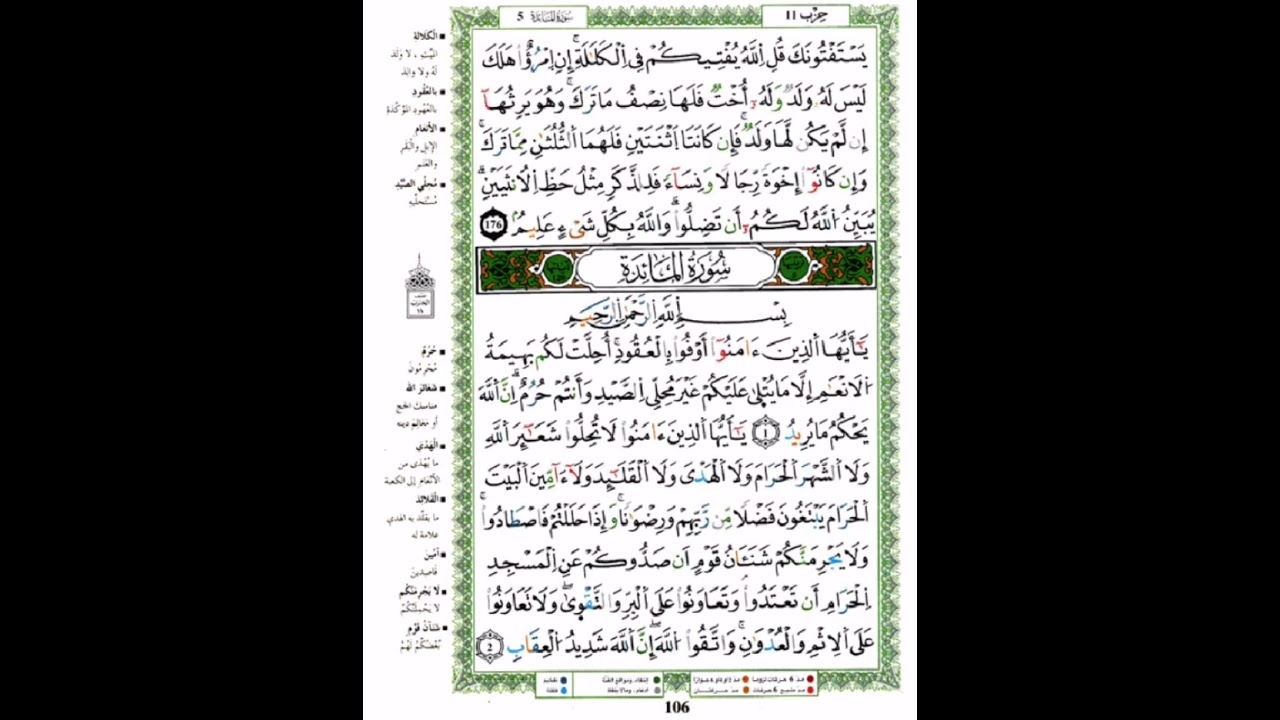 سُورَةُ المَائِدَة 5
حِزْب 11
يَسْتَفْتُونَكَ قُلِ اللَّهُ يُفْتِيكُمْ فِي الْكَلَالَةِ إِنِ امْرُؤٌا هَلَكَ
لَيْسَ لَهُ وَلَدٌ وَلَهُ أُخْتٌ فَلَهَا نِصْفُ مَا تَرَكَ وَهُوَ يَرِثُهَا
إِن لَّمْ يَكُن لَّهَا وَلَدٌ فَإِن كَانَتَا اثْنَتَيْنِ فَلَهُمَا الثُّلُثَٰنِ مِمَّا تَرَكَ
وَإِن كَانُوا إِخْوَةً رِّجَالًا وَنِسَاءً فَلِلذَّكَرِ مِثْلُ حَظِّ الْأُنثَيَيْنِ
يُبَيِّنُ اللَّهُ لَكُمُ أَن تَضِلُّوا وَاللَّهُ بِكُلِّ شَيْءٍ عَلِيمٌ 176
سُورَةُ المَائِدَة
بِسْمِ اللَّهِ الرَّحْمَٰنِ الرَّحِيمِ
يَٰأَيُّهَا الَّذِينَ ءَامَنُوا أَوْفُوا بِالْعُقُودِ أُحِلَّتْ لَكُم بَهِيمَةُ
الْأَنْعَٰمِ إِلَّا مَا يُتْلَىٰ عَلَيْكُمْ غَيْرَ مُحِلِّي الصَّيْدِ وَأَنتُمْ حُرُمٌ إِنَّ اللَّهَ
يَحْكُمُ مَا يُرِيدُ 1 يَٰأَيُّهَا الَّذِينَ ءَامَنُوا لَا تُحِلُّوا شَعَٰئِرَ اللَّهِ
وَلَا الشَّهْرَ الْحَرَامَ وَلَا الْهَدْيَ وَلَا الْقَلَٰئِدَ وَلَا ءَامِّينَ الْبَيْتَ
الْحَرَامَ يَبْتَغُونَ فَضْلًا مِّن رَّبِّهِمْ وَرِضْوَٰنًا وَإِذَا حَلَلْتُمْ فَاصْطَادُوا
وَلَا يَجْرِمَنَّكُمْ شَنَـَٔانُ قَوْمٍ أَن صَدُّوكُمْ عَنِ الْمَسْجِدِ
الْحَرَامِ أَن تَعْتَدُوا وَتَعَاوَنُوا عَلَى الْبِرِّ وَالتَّقْوَىٰ وَلَا تَعَاوَنُوا
عَلَى الْإِثْمِ وَالْعُدْوَٰنِ وَاتَّقُوا اللَّهَ إِنَّ اللَّهَ شَدِيدُ الْعِقَابِ 2
الْكَلَالَةِ
المَيِّتِ، لَا وَلَدَ
لَهُ وَلَا وَالِدَ
بِالْعُقُودِ
بِالْعُهُودِ الْمُؤَكَّدَةِ
الْأَنْعَامِ
الإِبِلِ وَالْبَقَرِ
وَالْغَنَمِ
مُحِلِّي الصَّيْدِ
مُسْتَحِلِّيهِ
حُرُمٌ
مُحْرِمُونَ
شَعَائِرَ اللَّهِ
مناسك الحج
أو معالم دينه
الْهَدْيَ
ما يُهْدَى من
الأنعام إلى الكعبة
الْقَلَائِدَ
ما يقلد به الهدي
علامة له
آمِّينَ
قَاصِدِينَ
لَا يَجْرِمَنَّكُمْ
لَا يَحْمِلَنَّكُمْ
شَنَآنُ قَوْمٍ
بُغْضُكُمْ لَهُمْ
106